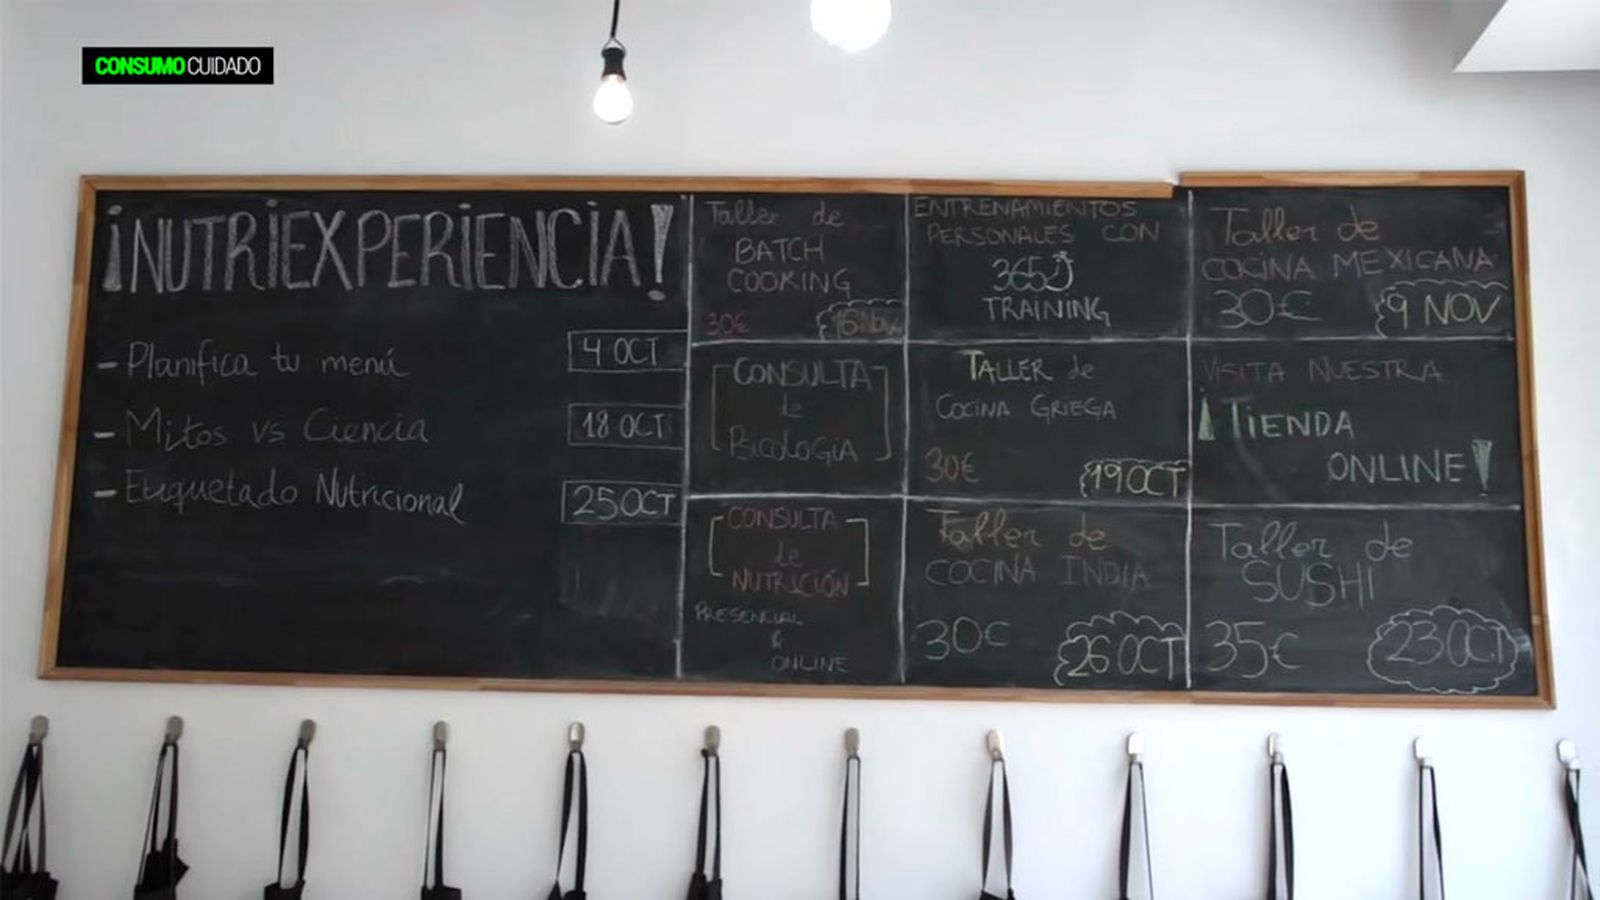 CONSUMO CUIDADO
¡NUTRIEXPERIENCIA!
- Planifica tu menú 4 OCT
- Mitos vs Ciencia 18 OCT
- Etiquetado Nutricional 25 OCT
Taller de
BATCH
COOKING
30€ 16 Nov
ENTRENAMIENTOS
PERSONALES CON
365
TRAINING
Taller de
COCINA MEXICANA
30€ 9 NOV
CONSULTA
de
PSICOLOGIA
TALLER de
COCINA GRIEGA
30€ 19 OCT
VISITA NUESTRA
¡TIENDA
ONLINE!
CONSULTA
de
NUTRICIÓN
PRESENCIAL
&
ONLINE
Taller de
COCINA INDIA
30€ 26 OCT
Taller de
SUSHI
35€ 23 OCT